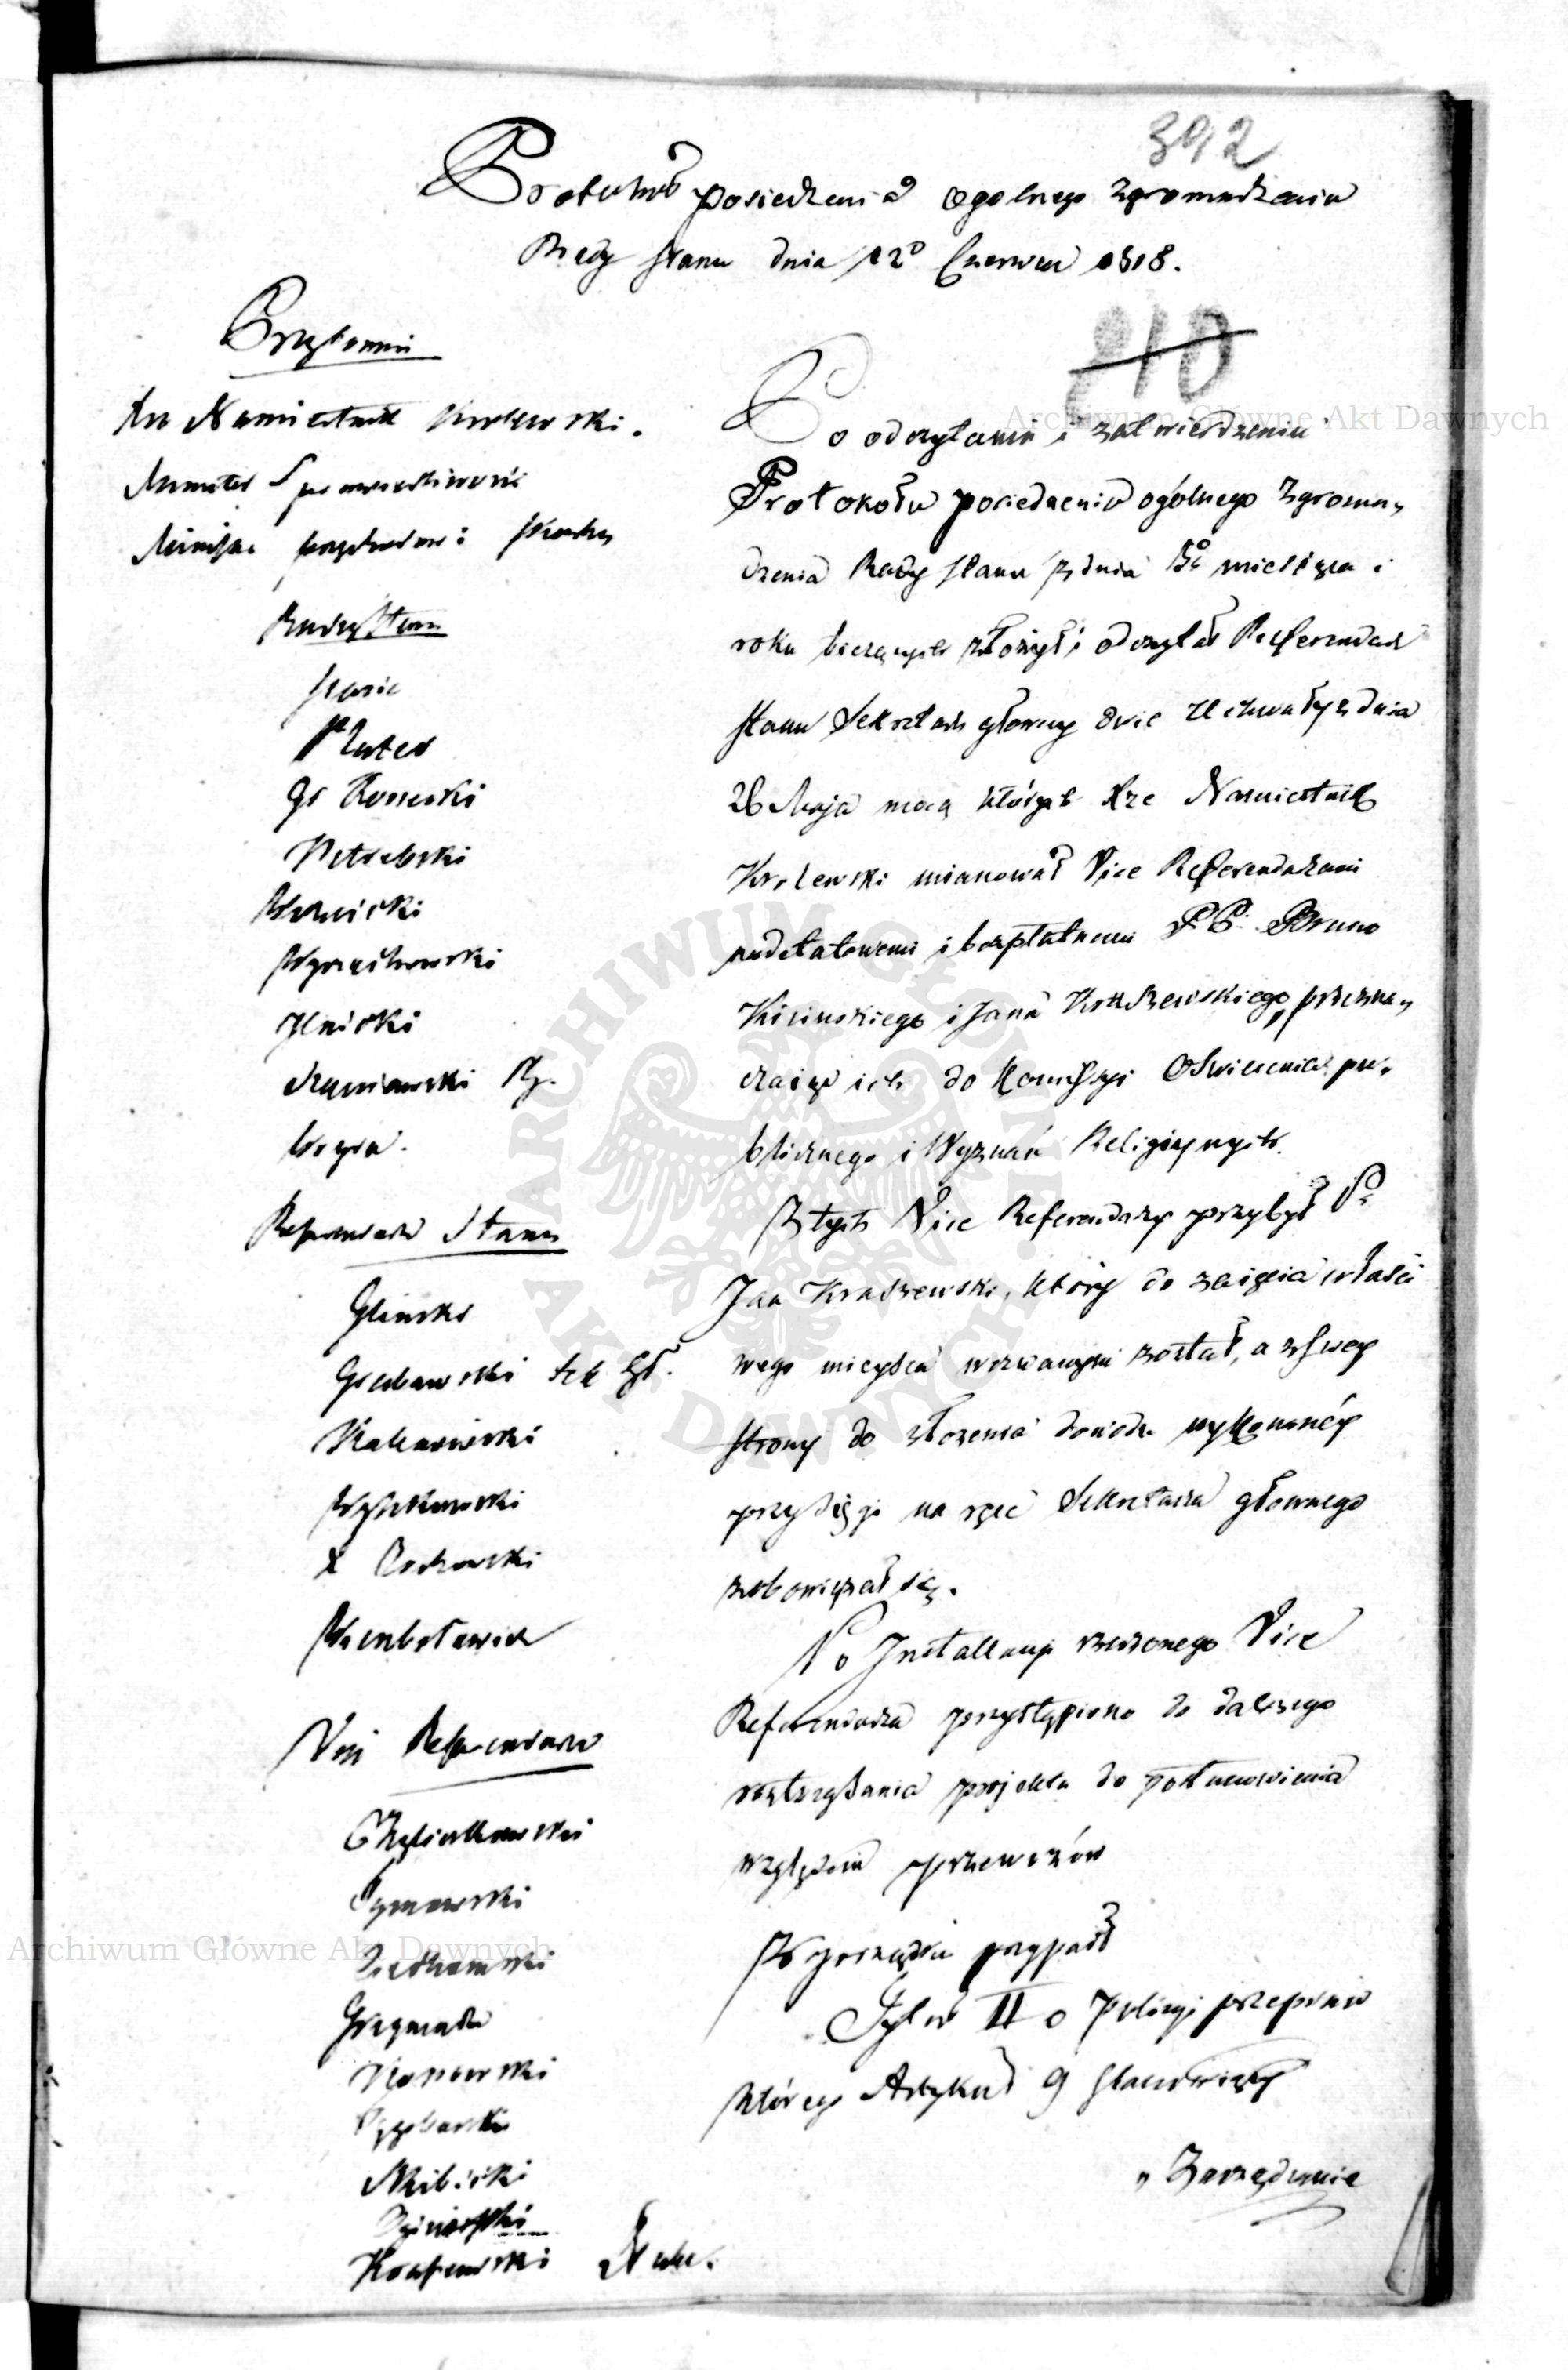 392
Protokuł posiedzenia ogolnego Zgromadzenia
Rady Stanu dnia 12º Czerwca 1818.
210
Przytomni
Xże Namiestnik Krolewski.
Minister Sprawiedliwości
Minister przychodow i Skarbu
Radcy Stanu
Staszic
Plater
Gr Kossecki
Potrebski
Woznicki
Wyczechowski
Ilnicki
Szaniawski
Woyda.
Referendarze Stanu
Glinski
Grabowski Sek Gł.
Kalinowski
Wyszkowski
X Czarnecki
Wiemboławicz
Vice Referendarze
Tymowski
Grzymała
Kossowski
Skibicki
Kraszewski
Po odczytaniu i zatwierdzeniu
Protokołu posiedzenia ogólnego Zgroma„
dzenia Rady Stanu z dnia 5º miesiąca i
roku bieżących złożył i odczytał Referendarz
Stanu Sekretarz głowny dwie Uchwały z dnia
26 Maja mocą których Xże Namiestnik
Krolewski mianował Vice Referendarzami
nadetatowemi i bezpłatnemi PP. Bruno
Kicinskiego i Jana Kraszewskiego, przezna„
czaiąc ich do Kommissyi Oświecenia pu„
blicznego i Wyznań Religiynych.
Z tych Vice Referendarzy przybył P.
Jan Kraszewski, który do zaięcia właści
wego mieysca wezwanym został, a z swey
strony do złożenia dowodu wykonaney
przysięgi na ręce Sekretarza głownego
zobowiązał się.
Po Installacyi rzeczonego Vice
Referendarza przystąpiono do dalszego
roztrząsania projektu do postanowienia
względem przewozów
Z porządku przypadł
Tytuł II o Policyi przepraw
którego Artykuł 9 stanowiący
„ Zarządzanie
Archiwum Główne Akt Dawnych
Archiwum Główne Akt Dawnych
ARCHIWUM GŁÓWNE AKT DAWNYCH